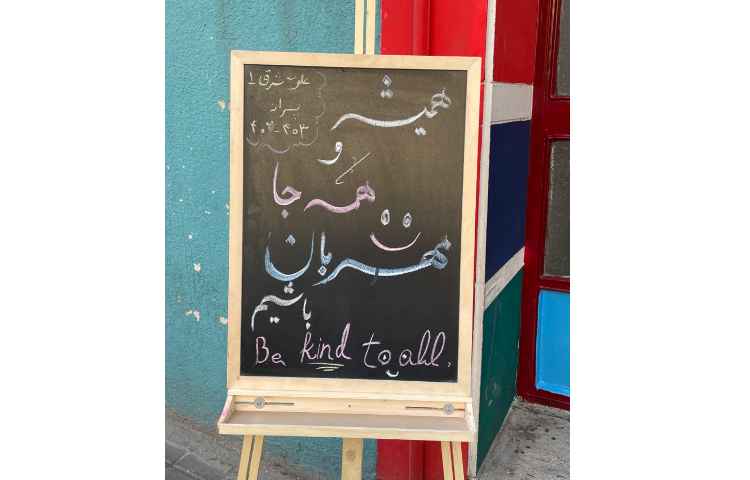 علوی شرق ۱
بهار
۴۰۴-۴۰۳
همیشه
و
همه جا
مهربان
باشیم
Be kind to all.